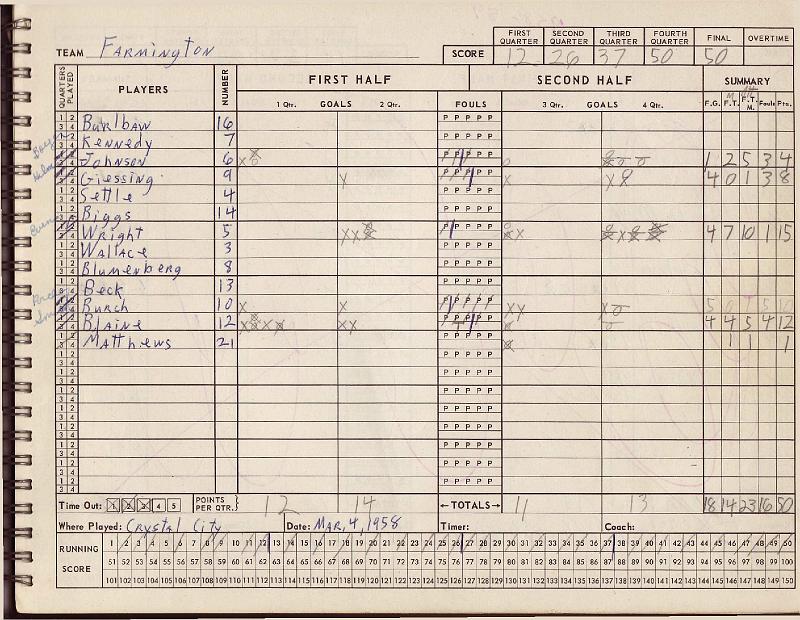 FIRST QUARTER SECOND QUARTER THIRD QUARTER FOURTH QUARTER FINAL OVERTIME
TEAM Farmington SCORE 12 26 37 50 50
QUARTERS PLAYED PLAYERS NUMBER FIRST HALF SECOND HALF SUMMARY
1 Qtr. GOALS 2 Qtr. FOULS 3 Qtr. GOALS 4 Qtr. F.G. F.T. F.T.M. Fouls Pts.
Burlbaw 16
Kennedy 7
Johnson 6 1 2 5 3 4
Giessing 9 4 0 1 3 8
Settle 4
Biggs 14
Wright 5 4 7 10 1 15
Wallace 3
Blumenberg 8
Beck 13
Burch 10 5
Blaine 12 4 4 5 4 12
Matthews 21 1 1 1
Time Out: 1 2 3 4 5 POINTS PER QTR. 12 14 ←TOTALS→ 11 13 18 14 23 16 50
Where Played: Crystal City Date: Mar, 4, 1958 Timer: Coach:
RUNNING SCORE
1 2 3 4 5 6 7 8 9 10 11 12 13 14 15 16 17 18 19 20 21 22 23 24 25 26 27 28 29 30 31 32 33 34 35 36 37 38 39 40 41 42 43 44 45 46 47 48 49 50
51 52 53 54 55 56 57 58 59 60 61 62 63 64 65 66 67 68 69 70 71 72 73 74 75 76 77 78 79 80 81 82 83 84 85 86 87 88 89 90 91 92 93 94 95 96 97 98 99 100
101 102 103 104 105 106 107 108 109 110 111 112 113 114 115 116 117 118 119 120 121 122 123 124 125 126 127 128 129 130 131 132 133 134 135 136 137 138 139 140 141 142 143 144 145 146 147 148 149 150